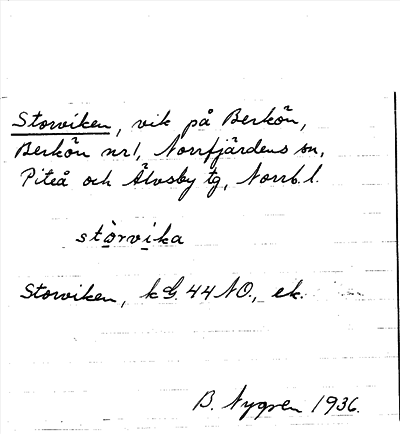 Storviken, vik på Berkön,
Berkön nr 1, Norrfjärdens sn,
Piteå och Älvsby tg, Norrb. l.
stòrvika
Storviken, k G. 44 NO., ek.
B. Nygren 1936.